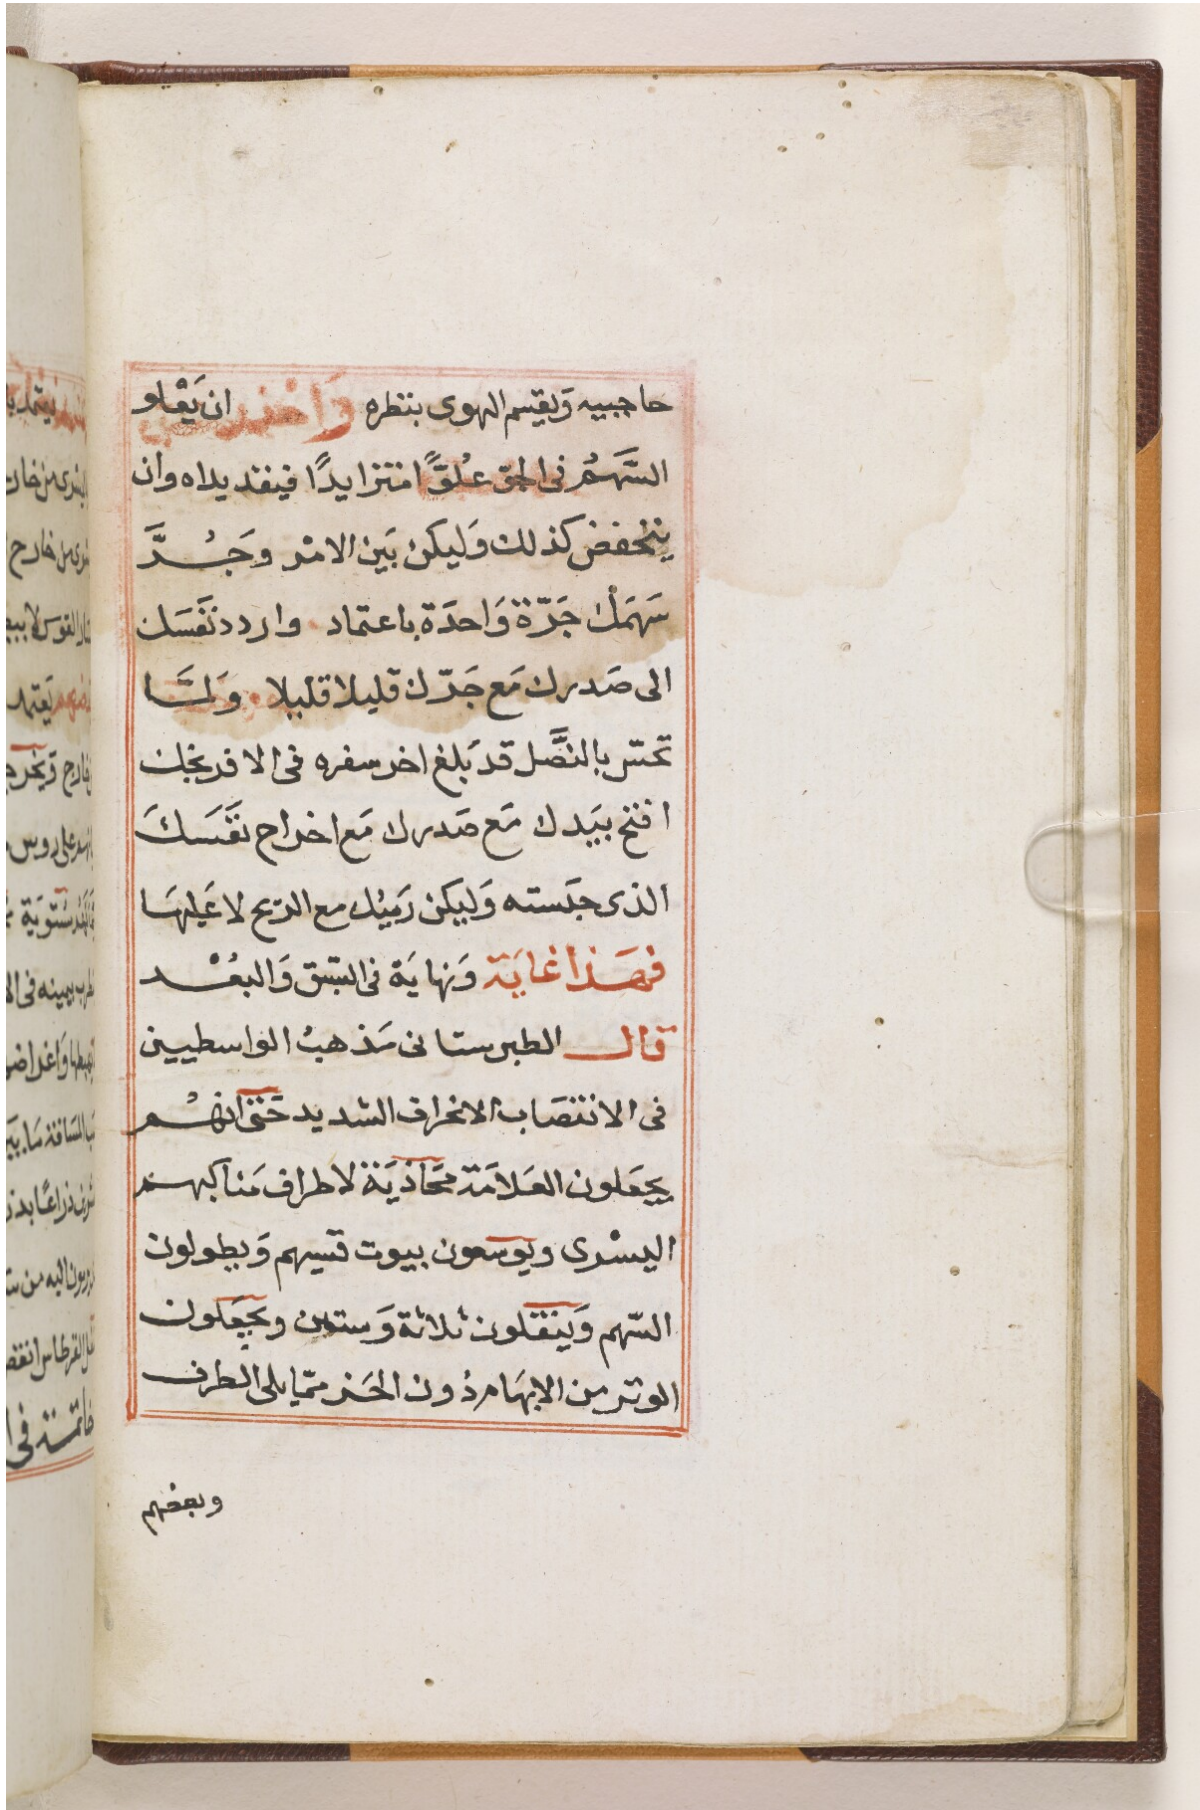 حاجبيه وَيقيم الهوى بنظره وَاحْذر ان يَعْلو
السَّهَمُ فى الجوّ عُلوًّا متزايدًا فينقد يداه وان
ينخفض كذلك وَليكن بَين الامْر وجَدَّ
سَهمَك جَرّة وَاحدَة باعتماد واردد نَفَسَك
الى صَدرك مَع جَرّك قليلا قليلا وَلمَّا
تحسّ بالنَّصل قد بَلغ اخر سفره فى الا فربخك
افتح بيَدك مَع صَدرك مَع اخراج نفَسَكَ
الذى حبَسته وَليكن رَميُك مع الريح لا عَليهَا
فهَذا غايَة وَنهايَة فى السّبق وَالبعُد
قال الطبرستانى مَذهبُ الواسطيين
فى الانتصَاب الانحراف الشديد حَتى انهُم
يجعَلون العَلامَة محَاذيَة لاطراف مَناكبهم
اليسْرى ويوسعون بيوت قسيهم وَيطولون
السّهم وَينقلون ثلاثة وَستين ويجعَلون
الوتر من الابهَام دُون الحَز ممّا يلى الطرف
وبعضهم